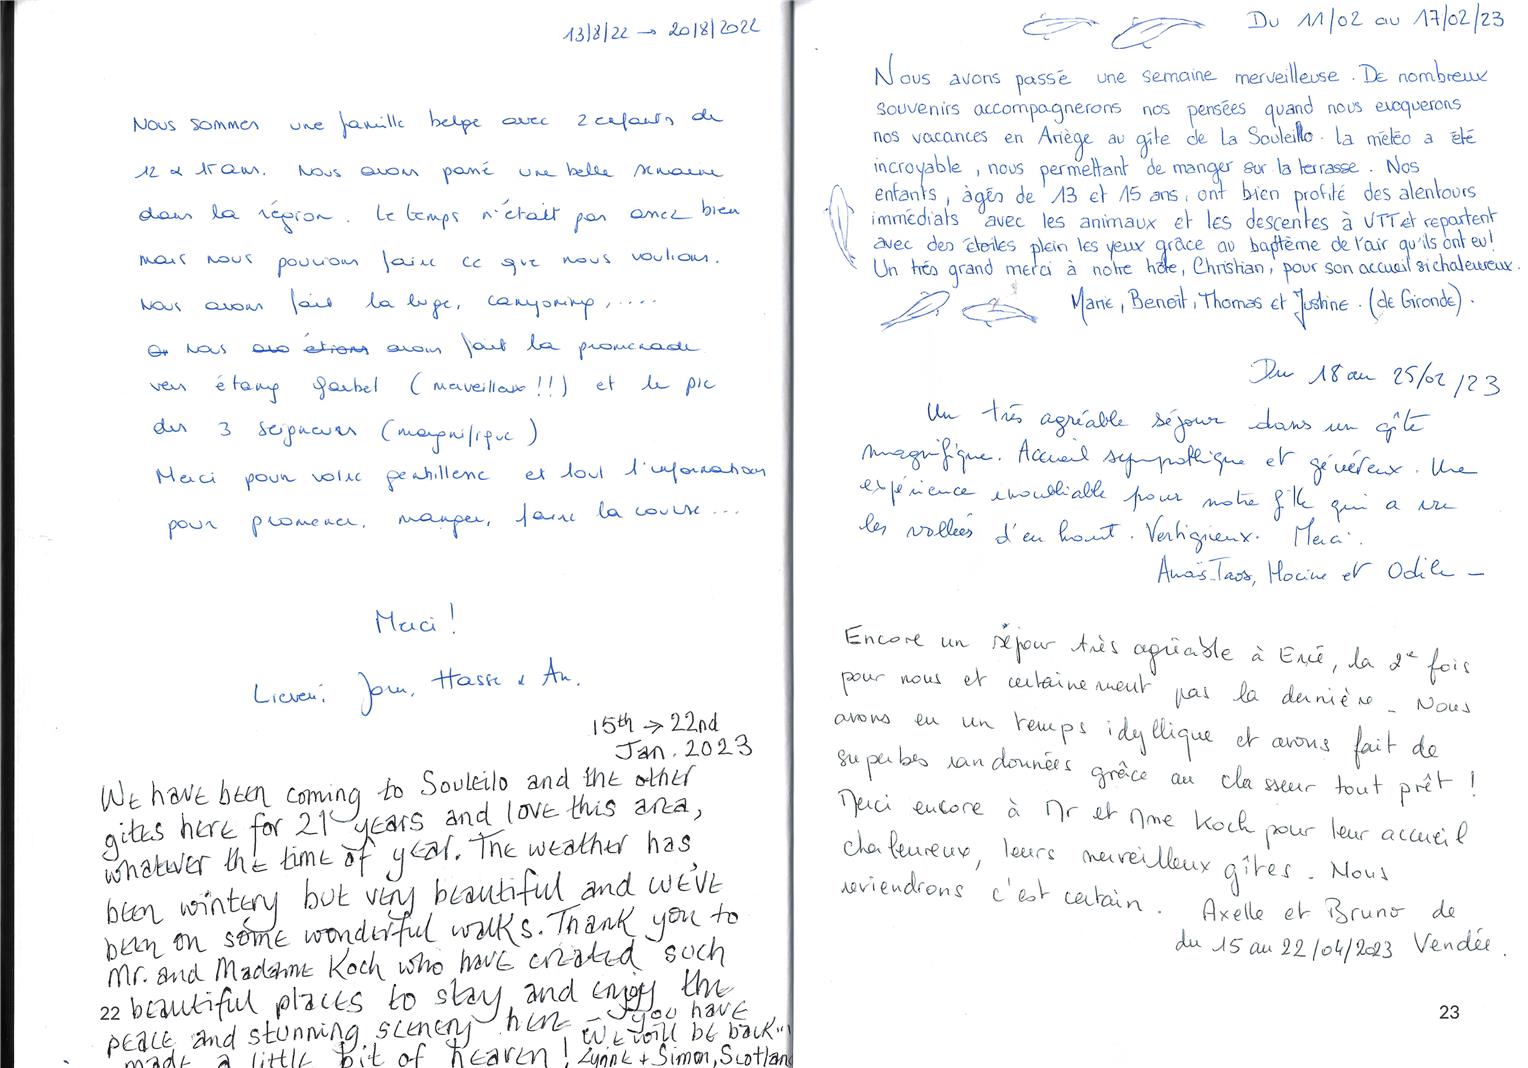 13/8/22 → 20/8/2022
Nous sommes une famille belge avec 2 enfants de
12 & 15 ans. Nous avons passé une belle semaine
dans la région. Le temps n'était pas assez bien
mais nous pouvions faire ce que nous voulions.
Nous avons fait la luge, canyoning, .....
Nous avons fait la promenade
vers étang Garbet (merveilleux !!) et le pic
des 3 seigneurs (magnifique)
Merci pour votre gentillesse et tout l'information
pour promener, manger, faire la course ...
Merci !
Lieven, Jorn, Hasse & An.
15th → 22nd
Jan. 2023
We have been coming to Souleilo and the other
gites here for 21 years and love this area,
whatever the time of year. The weather has
been wintery but very beautiful and we've
been on some wonderful walks. Thank you to
Mr. and Madame Koch who have created such
beautiful places to stay and enjoy the
peace and stunning scenery here – you have
made a little bit of heaven ! We will be back...
Lynne + Simon, Scotland
22
Du 11/02 au 17/02/23
Nous avons passé une semaine merveilleuse. De nombreux
souvenirs accompagnerons nos pensées quand nous evoquerons
nos vacances en Ariège au gîte de La Souleillo. la météo a été
incroyable, nous permettant de manger sur la terrasse. Nos
enfants, âgés de 13 et 15 ans, ont bien profité des alentours
immédiats avec les animaux et les descentes à VTT et repartent
avec des étoiles plein les yeux grâce au baptême de l'air qu'ils ont eu!
Un très grand merci à notre hôte, Christian, pour son accueil si chaleureux.
Marie, Benoît, Thomas et Justine. (de Gironde).
Du 18 au 25/02/23
Un très agréable séjour dans un gîte
magnifique. Accueil sympathique et généreux. Une
expérience inoubliable pour notre fille qui a vu
les vallées d'en haut. Vertigineux. Merci.
Anaïs-Taos, Hocine et Odile –
Encore un séjour très agréable à Ercé, la 2e fois
pour nous et certainement pas la dernière – Nous
avons eu un temps idyllique et avons fait de
superbes randonnées grâce au classeur tout prêt !
Merci encore à Mr et Mme Koch pour leur accueil
chaleureux, leurs merveilleux gîtes. Nous
reviendrons c'est certain. Axelle et Bruno de
du 15 au 22/04/2023 Vendée.
23